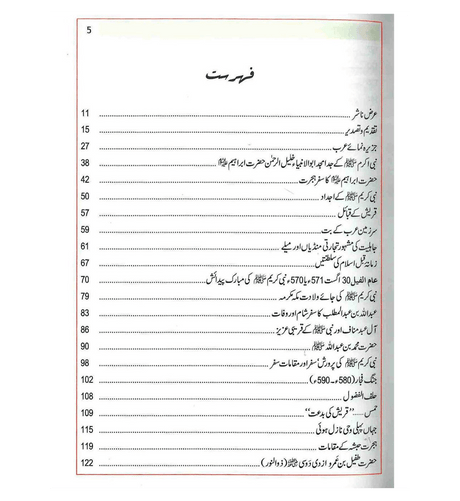 5
فہرست
عرض ناشر 11
تقدیم و تصدیر 15
جزیرہ نمائے عرب 27
نبی اکرم ﷺ کے جد امجد ابوالانبیاء خلیل الرحمٰن حضرت ابراہیم علیہ السلام 38
حضرت ابراہیم علیہ السلام کا سفر ہجرت 42
نبی کریم ﷺ کے اجداد 50
قریش کے قبائل 57
سرزمین عرب کے بت 59
جاہلیت کی مشہور تجارتی منڈیاں اور میلے 61
زمانہ قبل اسلام کی سلطنتیں 67
عام الفیل 30 اگست 571ء یا 570ء نبی کریم ﷺ کی مبارک پیدائش 70
نبی کریم ﷺ کی جائے ولادت مکہ مکرمہ 79
عبداللہ بن عبدالمطلب کا سفر شام اور وفات 83
آل عبد مناف اور نبی ﷺ کے قریبی عزیز 86
حضرت محمد بن عبداللہ ﷺ 90
نبی کریم ﷺ کی پرورش' سفر اور مقامات سفر 98
جنگ فجار (580ء - 590ء) 102
حلف الفضول 108
حمس ..... "قریش کی بدعت" 109
جہاں پہلی وحی نازل ہوئی 115
ہجرت حبشہ کے مقامات 119
حضرت طفیل بن عمرو ازدی دوسی (ذوالنور) 122